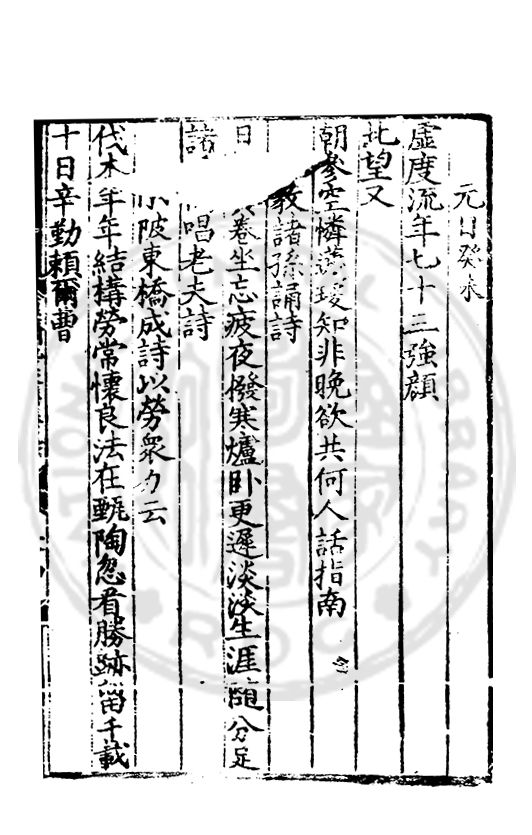 元日癸未
虛度流年七十三強顏
北望又
朝參空憐蘧瑗知非晚欲共何人話指南
教諸孫誦詩
日 卷坐忘疲夜撥寒爐卧更遲淡淡生涯隨分足
諸 唱老夫詩
陂東橋成詩以勞衆力云
伐木年年結構勞常懷良法在甄陶忽看勝跡留千載
十日辛勤賴爾曹